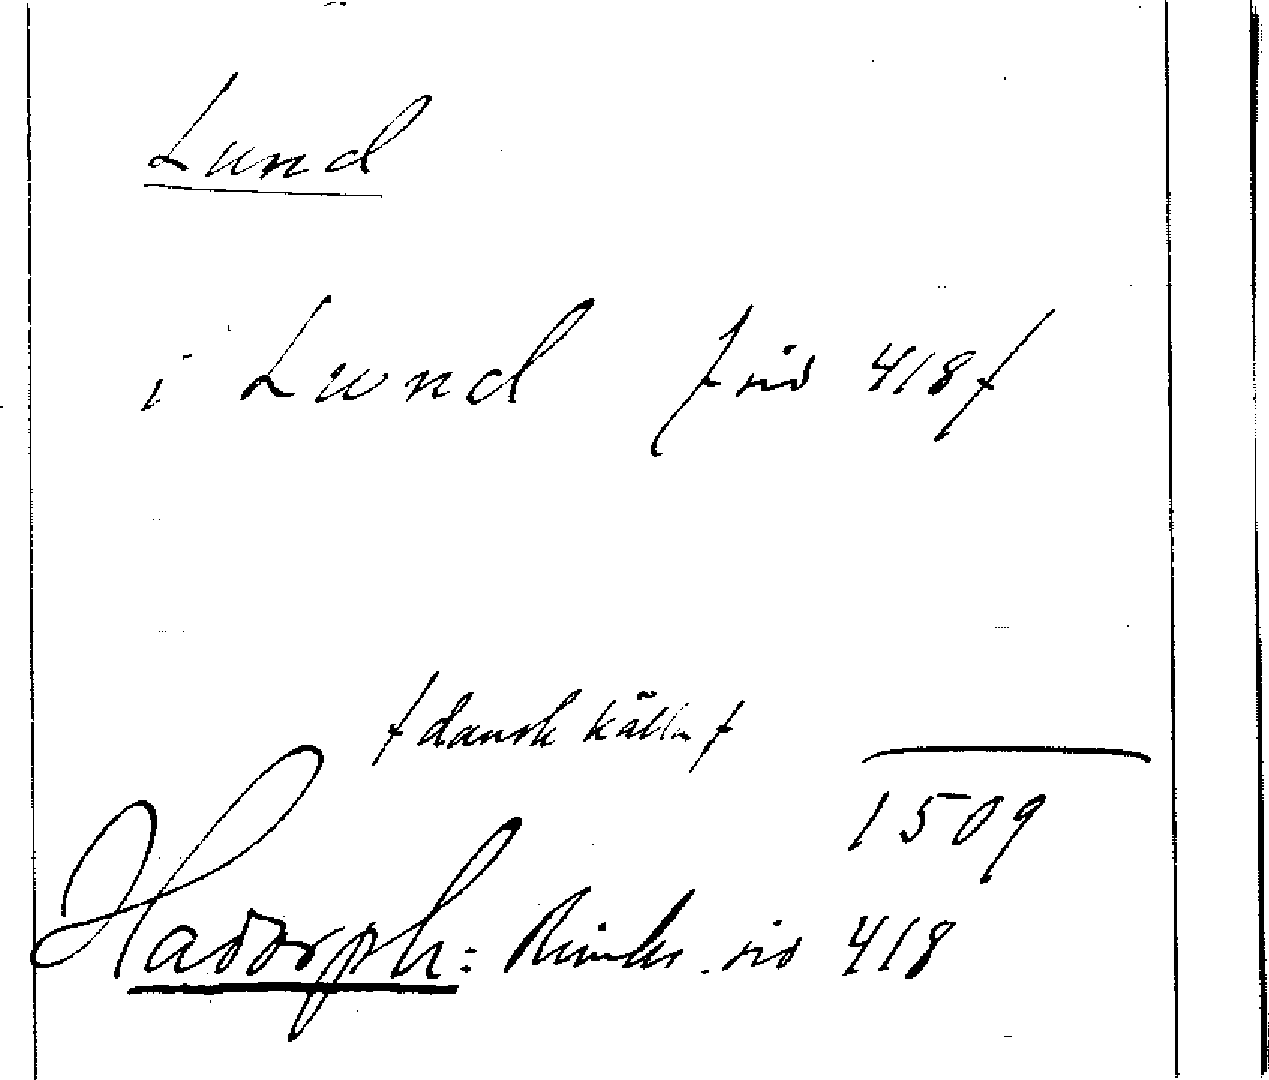 Lund
i Lund /sid 418/
/dansk källa/
1509
Hadorph: Rimkr. sid 418